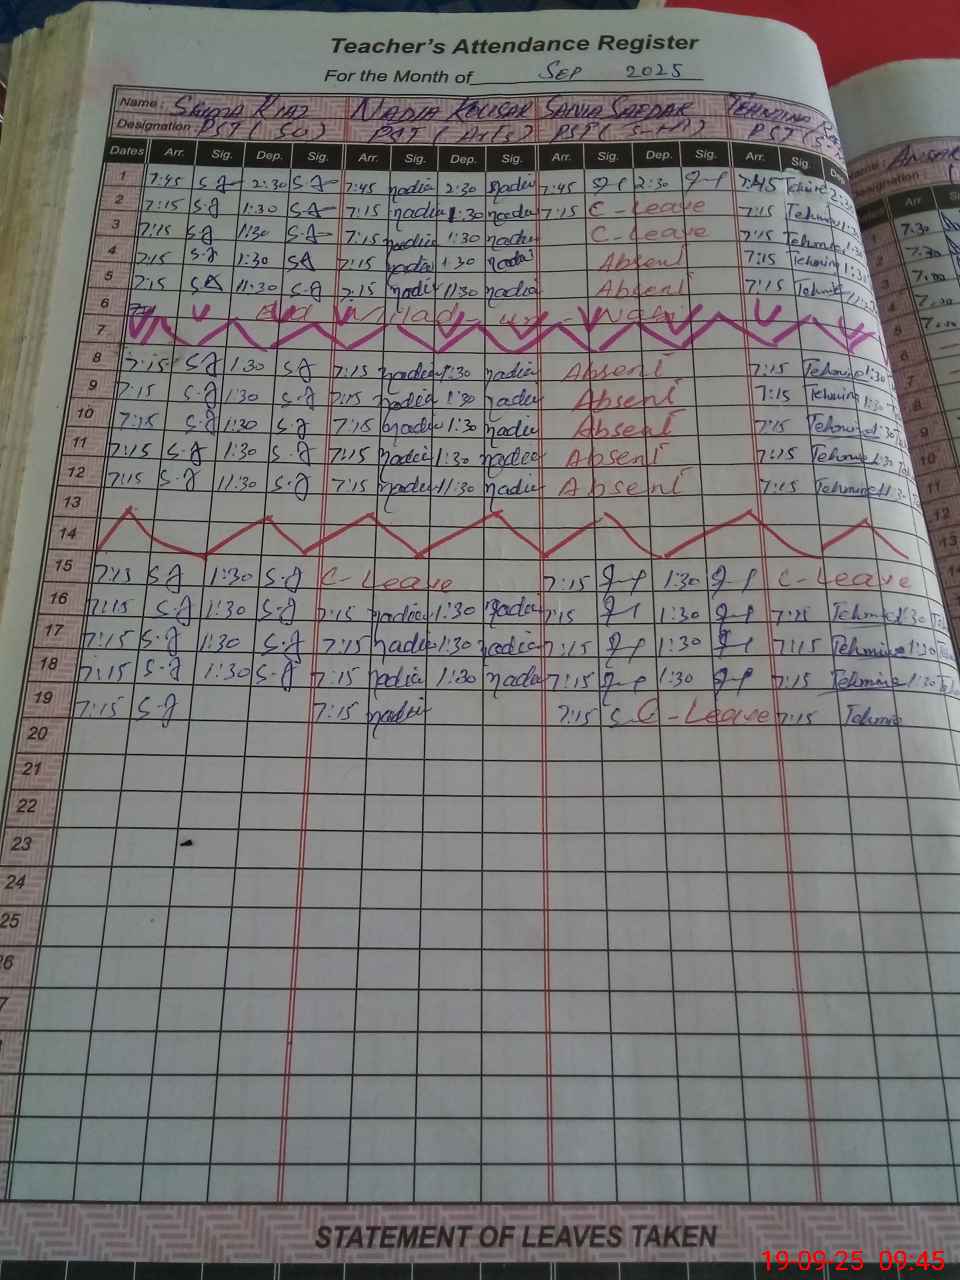 Teacher's Attendance Register
For the Month of SEP 2025
Name: SAIMA RIAZ NADIA KOUSAR SANIA SAFDAR TEHMINA
Designation: PST ( PST (Arts) PST ( PST (
Dates Arr. Sig. Dep. Sig. Arr. Sig. Dep. Sig. Arr. Sig. Dep. Sig. Arr. Sig. Dep
1 7:45 S.A 2:30 S.A 7:45 nadia 2:30 nadia 7:45 2:30 7:45 2:30
2 7:15 S.A 1:30 S.A 7:15 nadia 1:30 nadia 7:15 C-Leave 7:15 Tehmine
3 7:15 S.A 1:30 S.A 7:15 nadia 1:30 nadia C-Leave 7:15 Tehmine 1:30
4 7:15 S.A 1:30 SA 7:15 nadia 1:30 nadia Absent 7:15 Tehmine 1:30
5 7:15 SA 11:30 S.A 7:15 nadia 11:30 nadia Absent 7:15 Tehmine
6 Eid Milad-un-Nabi
7
8 7:15 S.A 1:30 S.A 7:15 nadia 1:30 nadia Absent 7:15 Tehmine 1:30
9 7:15 S.A 1:30 S.A 7:15 nadia 1:30 nadia Absent 7:15 Tehmine 1:30
10 7:15 S.A 1:30 S.A 7:15 nadia 1:30 nadia Absent 7:15 Tehmine 1:30
11 7:15 S.A 1:30 S.A 7:15 nadia 1:30 nadia Absent 7:15 Tehmine 1:30
12 7:15 S.A 11:30 S.A 7:15 nadia 11:30 nadia Absent 7:15 Tehmine 11:30
13
14
15 7:15 S.A 1:30 S.A C-Leave 7:15 1:30 C-Leave
16 7:15 S.A 1:30 S.A 7:15 nadia 1:30 nadia 7:15 1:30 7:15 Tehmine 1:30
17 7:15 S.A 1:30 S.A 7:15 nadia 1:30 nadia 7:15 1:30 7:15 Tehmine 1:30
18 7:15 S.A 1:30 S.A 7:15 nadia 1:30 nadia 7:15 1:30 7:15 Tehmine 1:30
19 7:15 S.A 7:15 nadia 7:15 S-C-Leave 7:15 Tehmine
20
21
22
23
24
25
STATEMENT OF LEAVES TAKEN
19-09-25 09:45